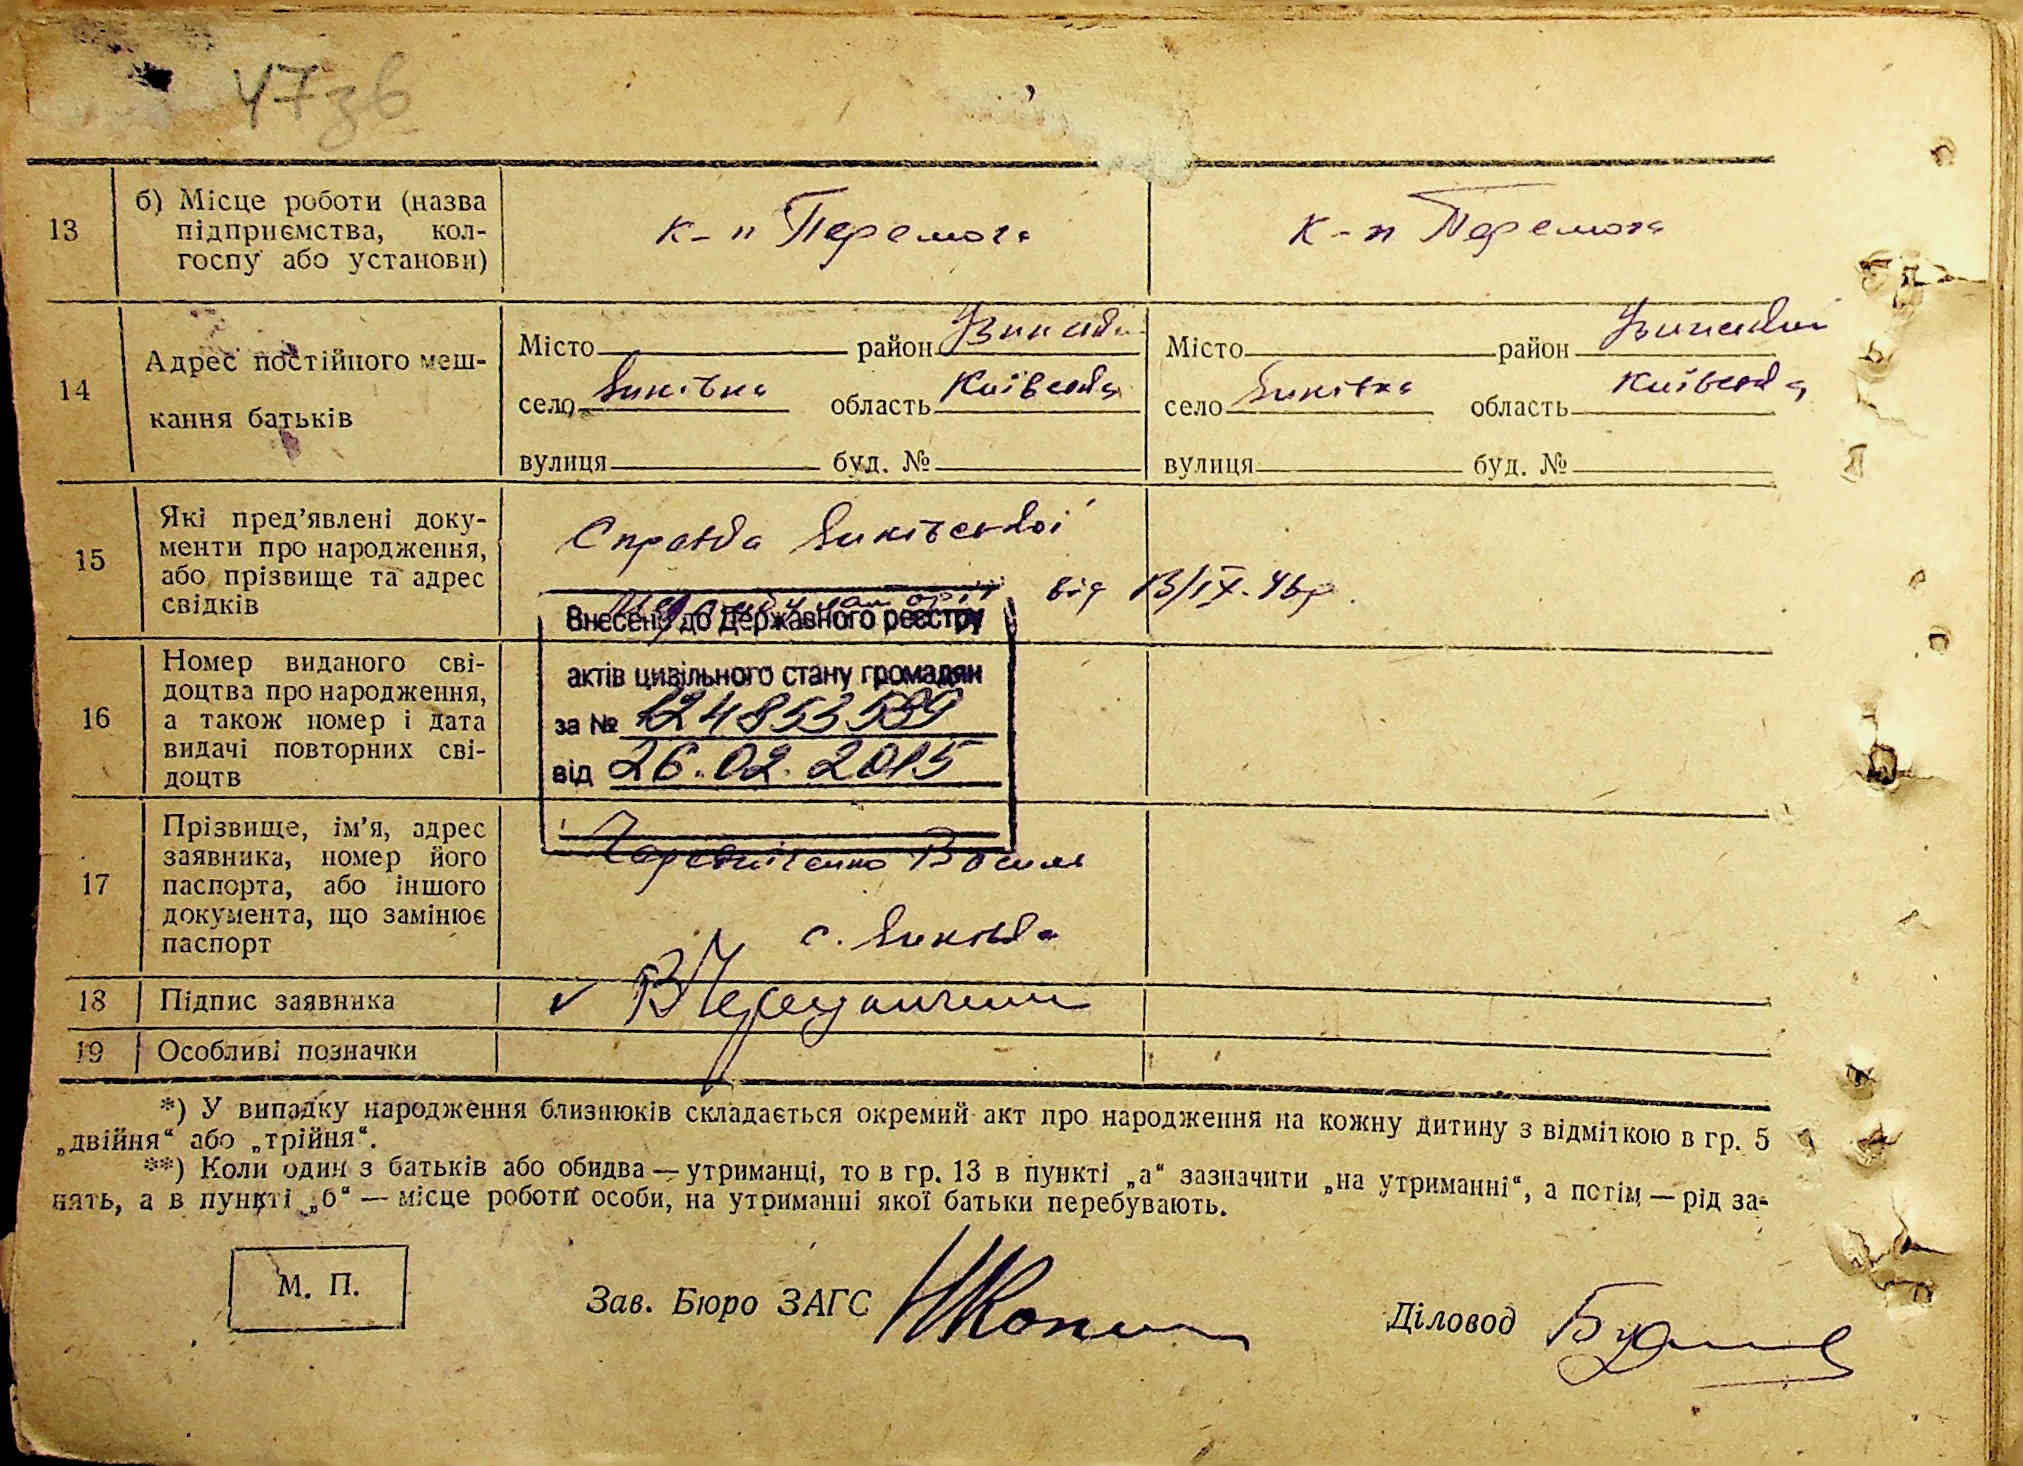 47зб
13
б) Місце роботи (назва
підприємства, кол-
госпу або установи)
к-п Перемога
к-п Перемога
14
Адрес постійного меш-
кання батьків
Місто район
село область Київська
вулиця буд. №
Місто район
село область Київська
вулиця буд. №
15
Які пред’явлені доку-
менти про народження,
або прізвище та адрес
свідків
Справка
від 13/IX-46р.
Внесено до Державного реєстру
актів цивільного стану громадян
за № 124853589
від 26.02.2015
16
Номер виданого сві-
доцтва про народження,
а також номер і дата
видачі повторних сві-
доцтв
17
Прізвище, ім’я, адрес
заявника, номер його
паспорта, або іншого
документа, що замінює
паспорт
Чередніченко Василь
с.
18
Підпис заявника
19
Особливі позначки
*) У випадку народження близнюків складається окремий акт про народження на кожну дитину з відміткою в гр. 5
„двійня“ або „трійня“.
**) Коли один з батьків або обидва — утриманці, то в гр. 13 в пункті „а“ зазначити „на утриманні“, а потім — рід за-
нять, а в пункті „б“ — місце роботи особи, на утриманні якої батьки перебувають.
М. П.
Зав. Бюро ЗАГС
Діловод